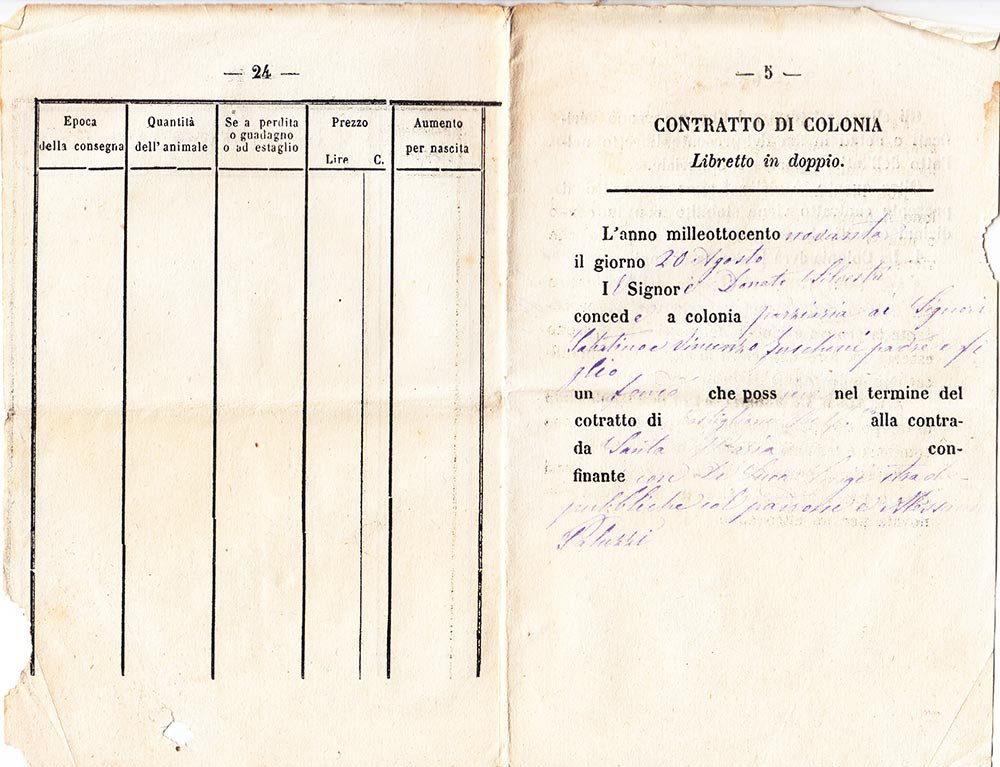 — 24 —
Epoca
della consegna
Quantità
dell'animale
Se a perdita
o guadagno
o ad estaglio
Prezzo
Lire C.
Aumento
per nascita
— 5 —
CONTRATTO DI COLONIA
Libretto in doppio.
L'anno milleottocento novanta
il giorno 20 Agosto
Il Signore Donato Silvestri
concede a colonia parziaria ai Signori
Sabatino e Vincenzo padre e fi
glio
un che poss nel termine del
cotratto di alla contra-
da Santa Maria con-
finante Di Luca strade
pubbliche col padrone e
Paluzzi